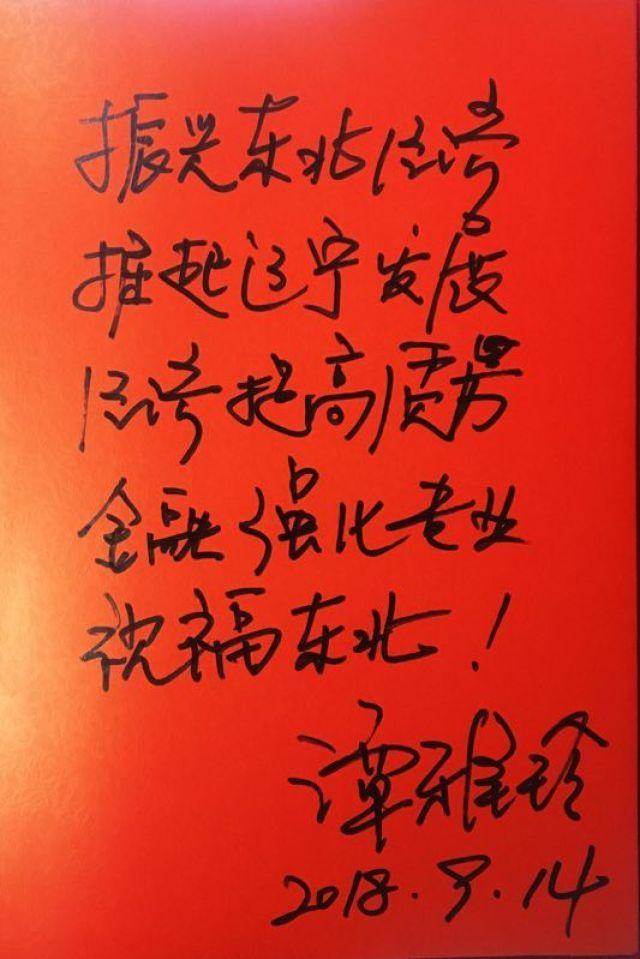 振兴东北经济
推进辽宁发展
经济提高质量
金融强化专业
祝福东北！
谭雅玲
2018.9.14